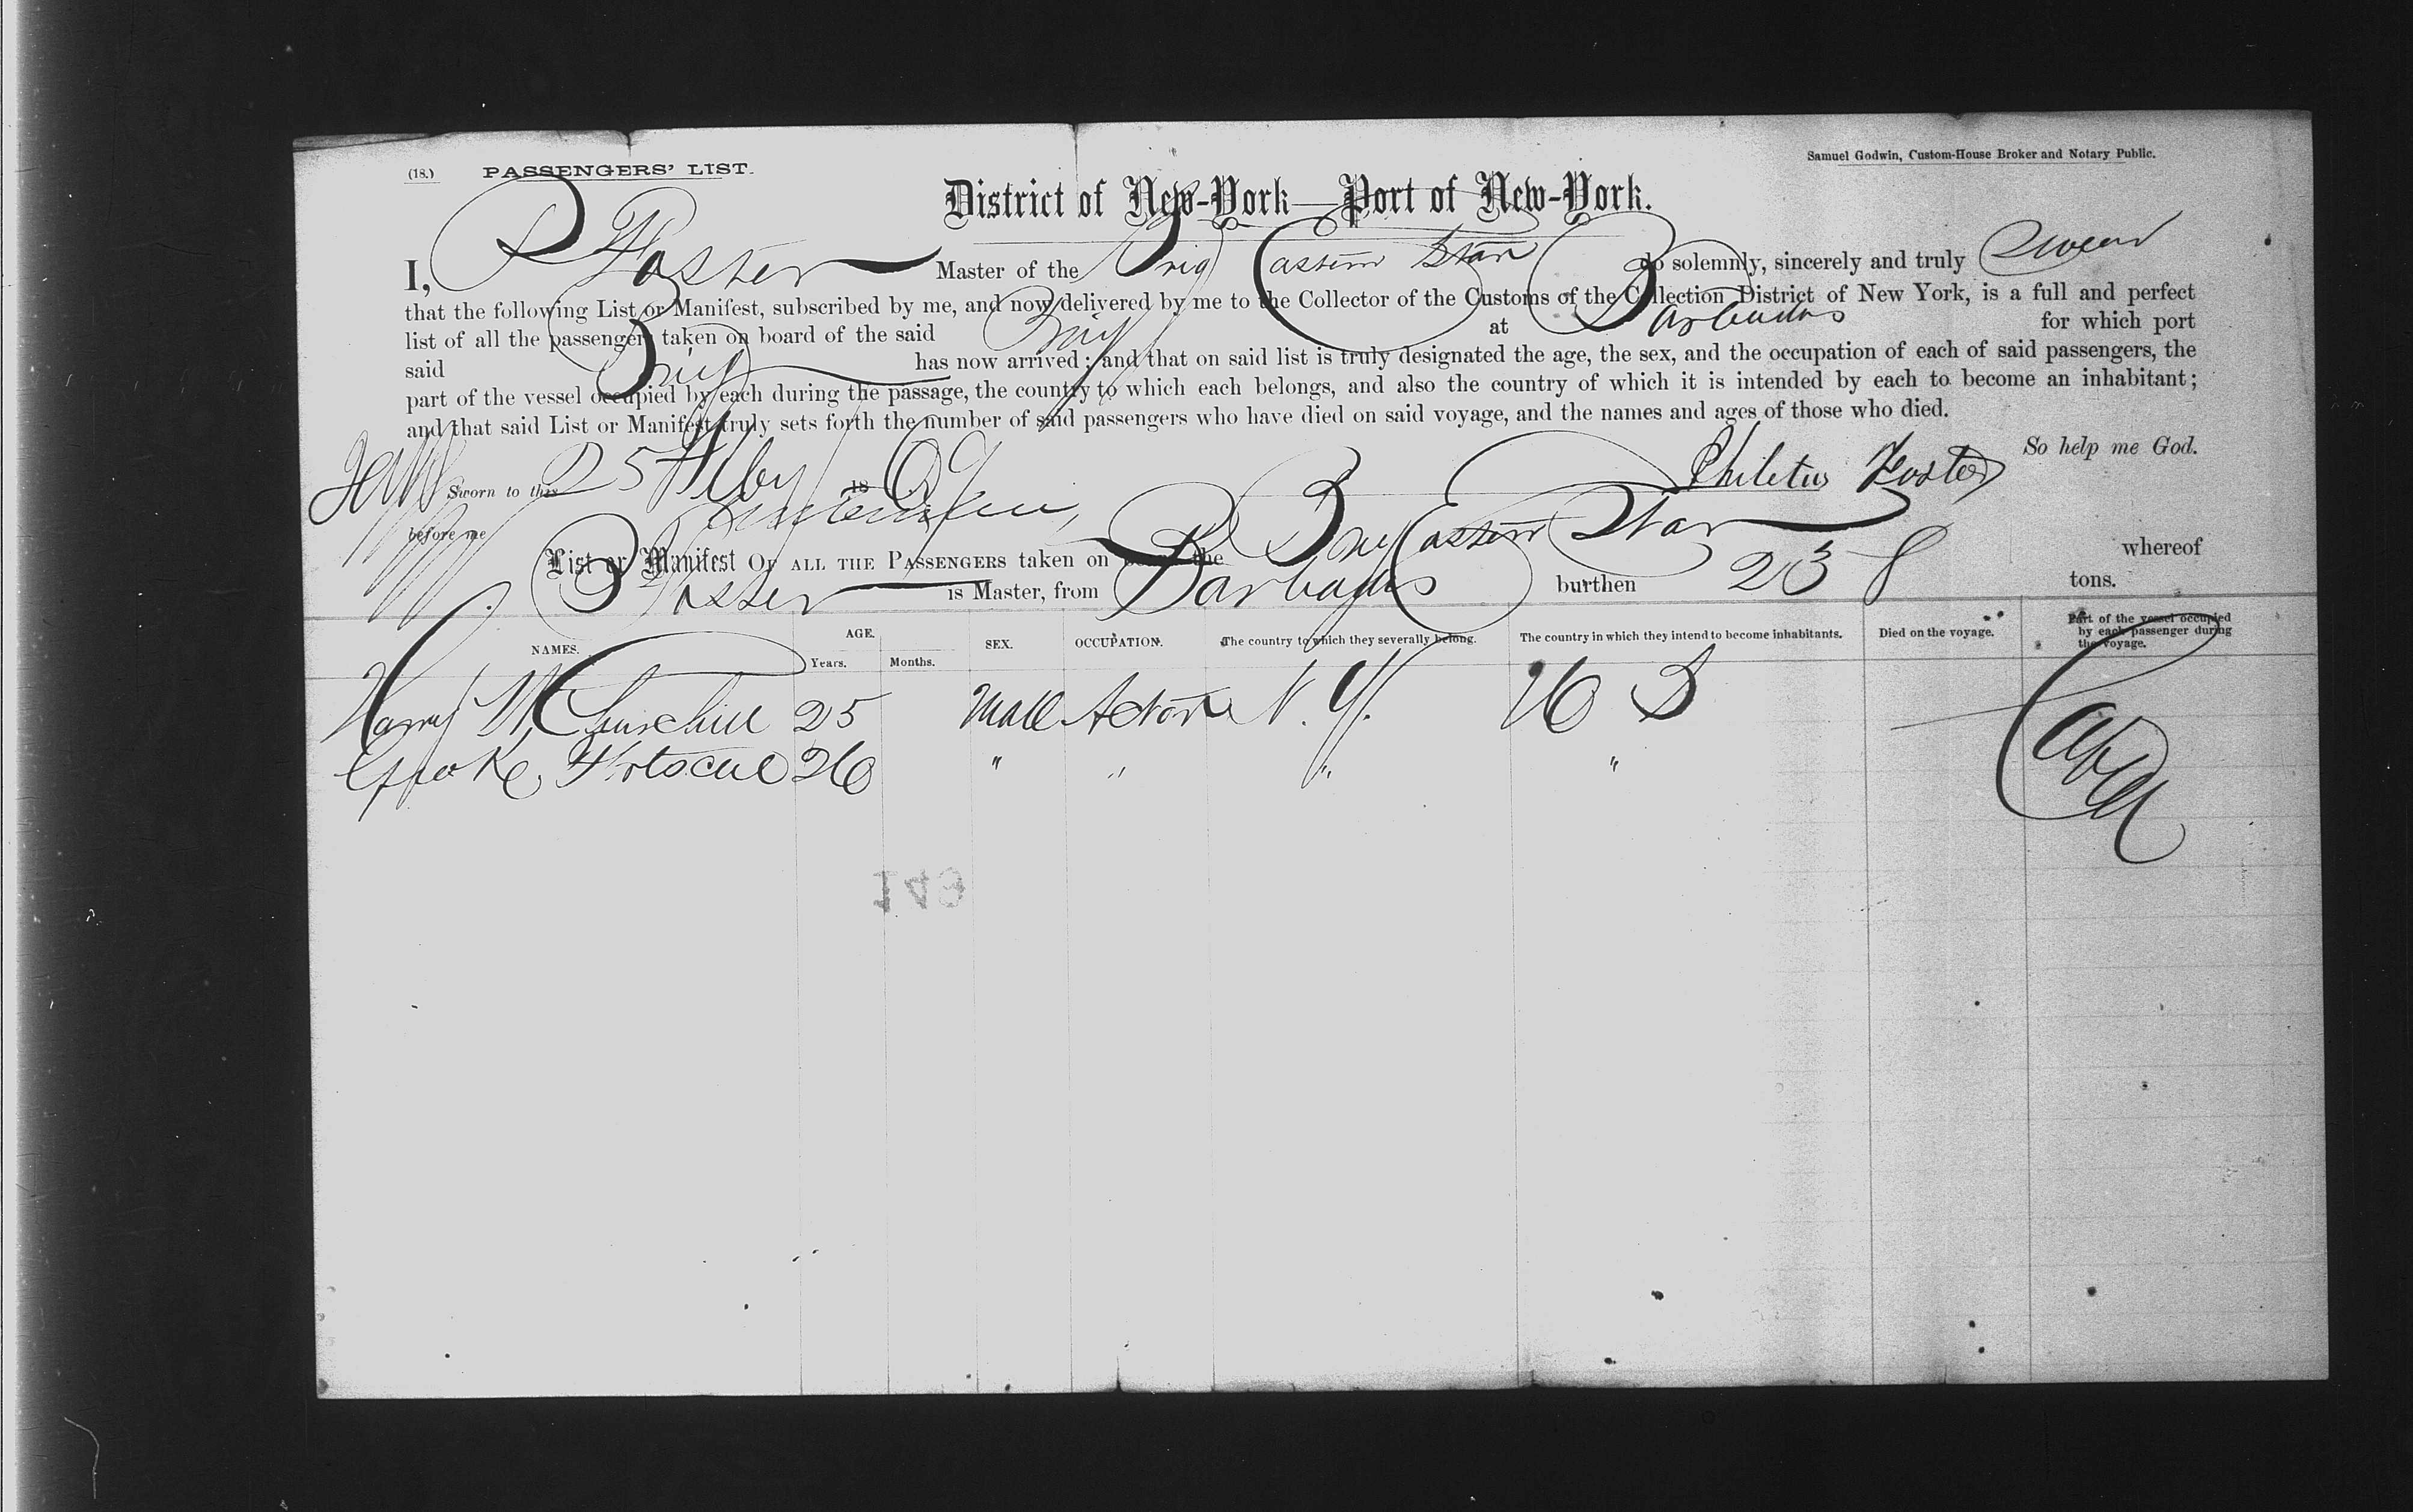 (18.) PASSENGERS' LIST.
Samuel Godwin, Custom-House Broker and Notary Public.
District of New-York—Port of New-York.
I, P Foster Master of the Brig Eastern Star do solemnly, sincerely and truly Swear
that the following List or Manifest, subscribed by me, and now delivered by me to the Collector of the Customs of the Collection District of New York, is a full and perfect
list of all the passengers taken on board of the said Brig at Barbados for which port
said Brig has now arrived; and that on said list is truly designated the age, the sex, and the occupation of each of said passengers, the
part of the vessel occupied by each during the passage, the country to which each belongs, and also the country of which it is intended by each to become an inhabitant;
and that said List or Manifest truly sets forth the number of said passengers who have died on said voyage, and the names and ages of those who died.
So help me God.
Sworn to this 25 Feby 1869 Philetus Foster
before me
List or Manifest OF ALL THE PASSENGERS taken on board the Brig Eastern Star whereof
P Foster is Master, from Barbados burthen 238 tons.
NAMES. AGE. Years. Months. SEX. OCCUPATION. The country to which they severally belong. The country in which they intend to become inhabitants. Died on the voyage. Part of the vessel occupied by each passenger during the voyage.
Harry W Churchill 25 Male Actor N. Y. U S Cabin
Geo K. 26 " " " "
149